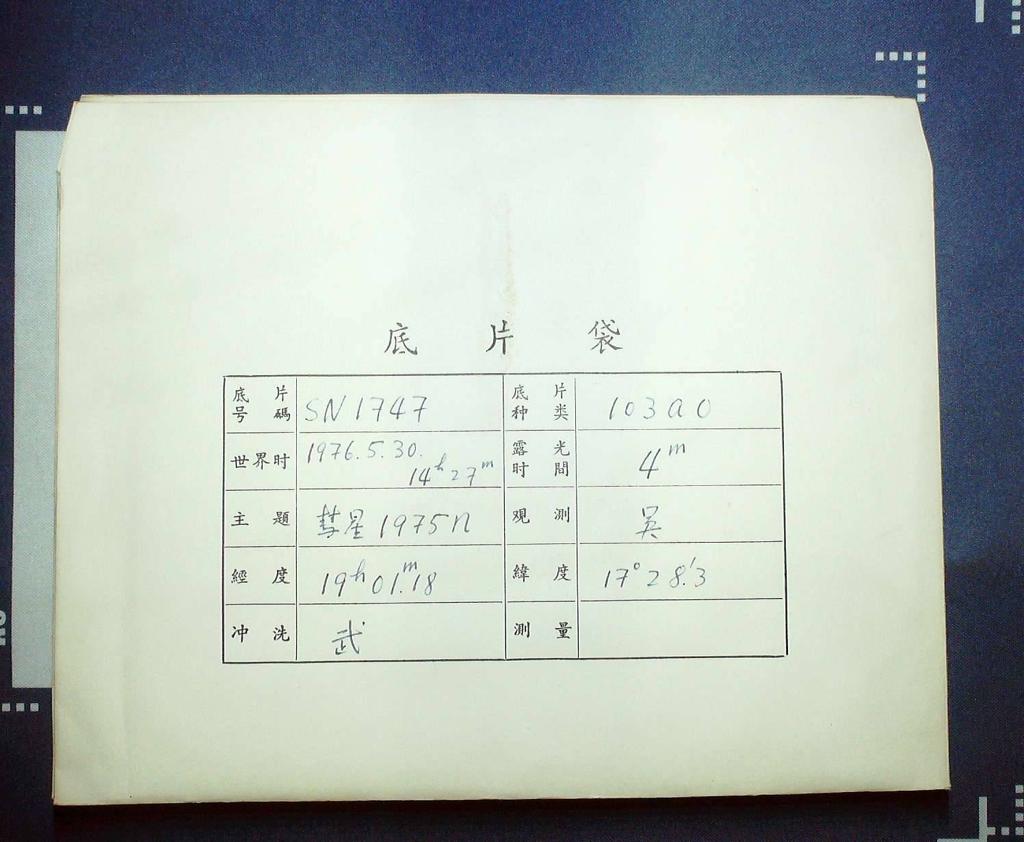 底 片 袋
底 片
号 碼
SN1747
底 片
种 类
103aO
世界时
1976.5.30.
14ʰ27ᵐ
露 光
时 間
4ᵐ
主 題
彗星1975n
观 测
吴
經 度
19ʰ01ᵐ.18
緯 度
17°28.′3
冲 洗
武
測 量